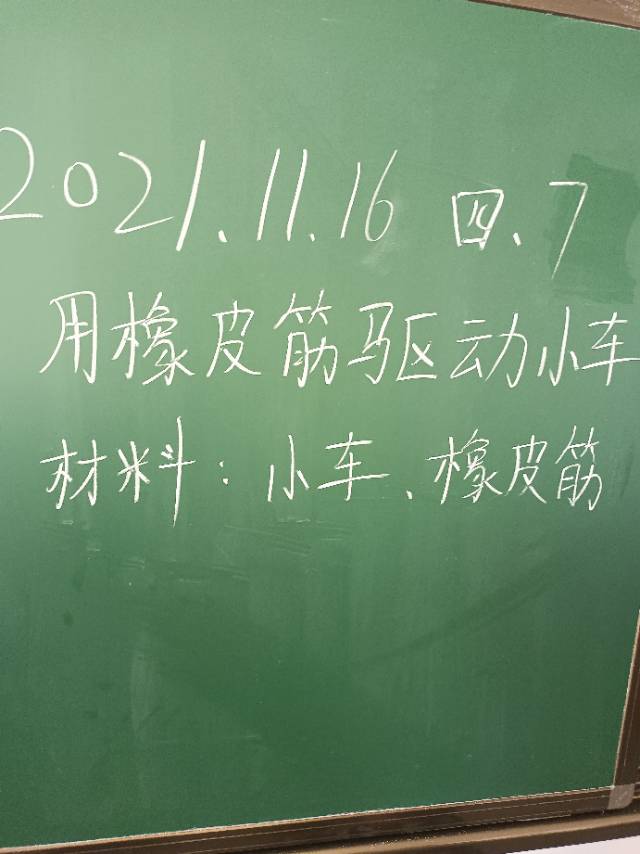 2021.11.16 四、7
用橡皮筋驱动小车
材料：小车、橡皮筋